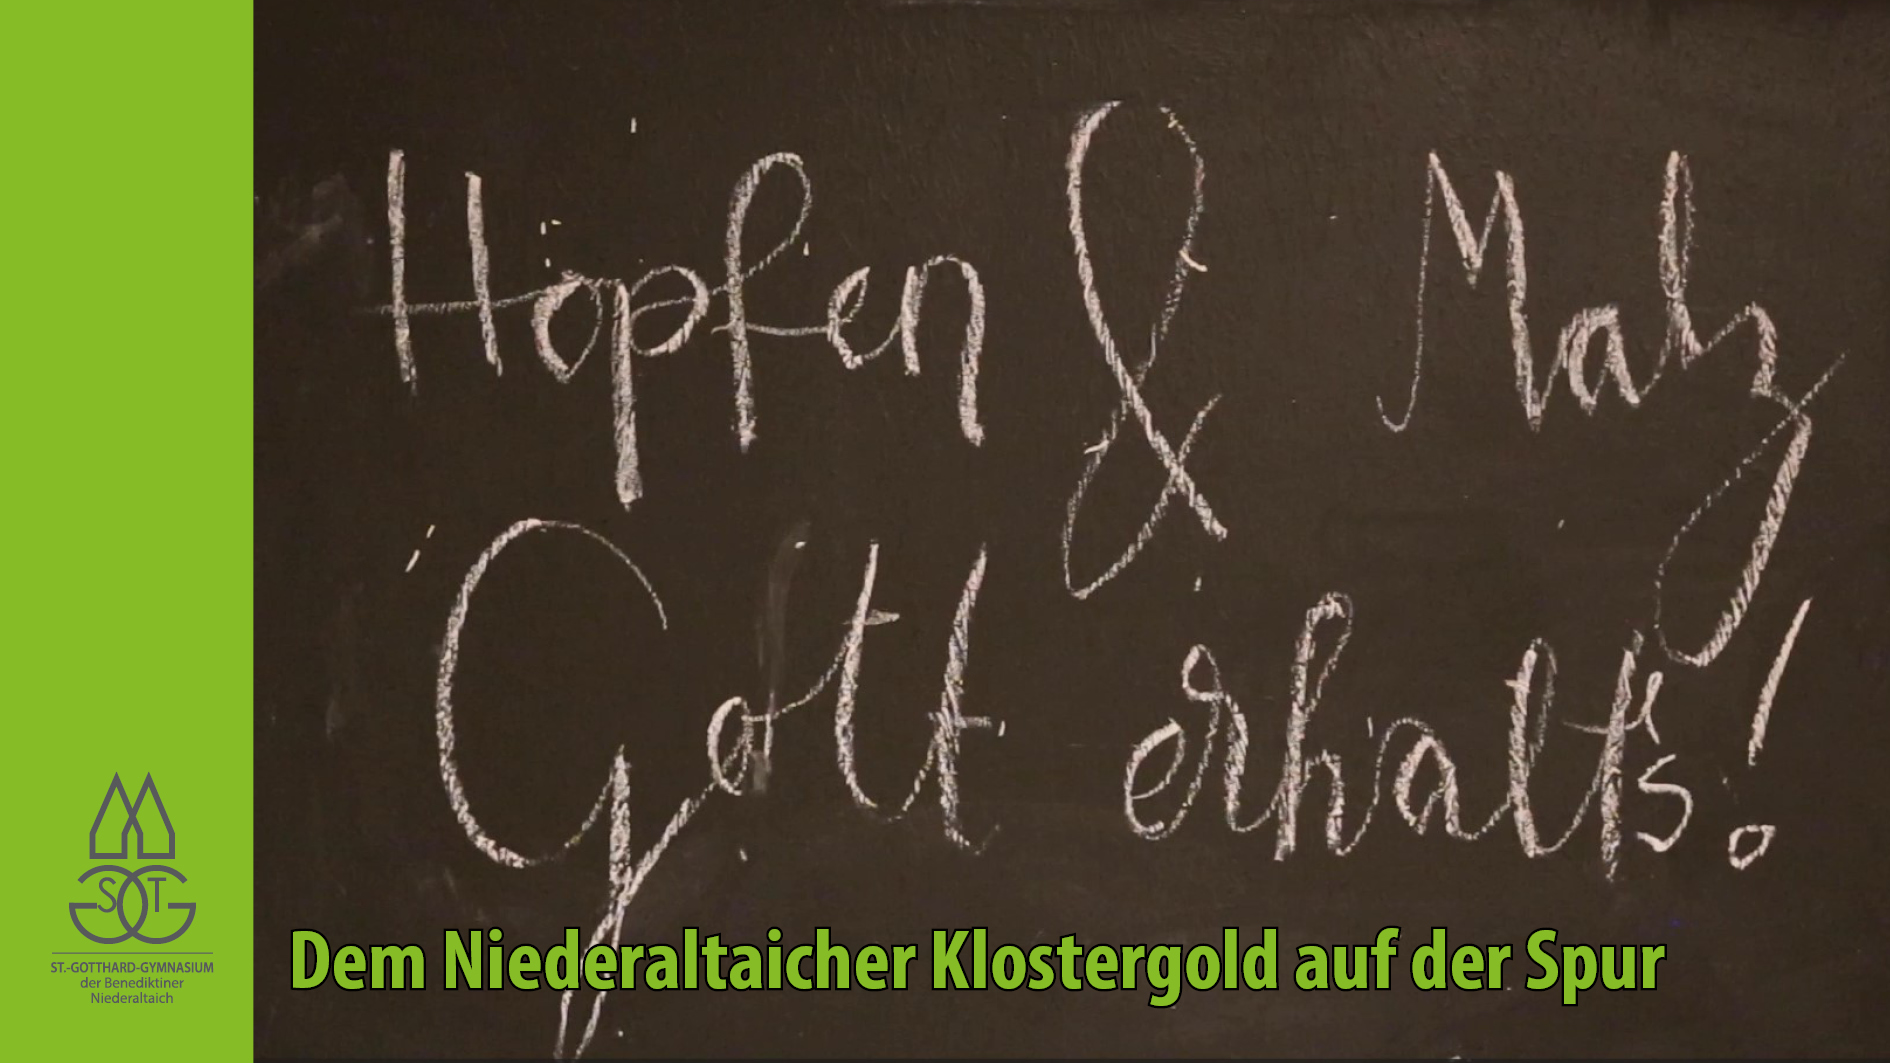 Hopfen & Malz
Gott erhalt's!
Dem Niederaltaicher Klostergold auf der Spur
S T
G G
ST.-GOTTHARD-GYMNASIUM
der Benediktiner
Niederaltaich